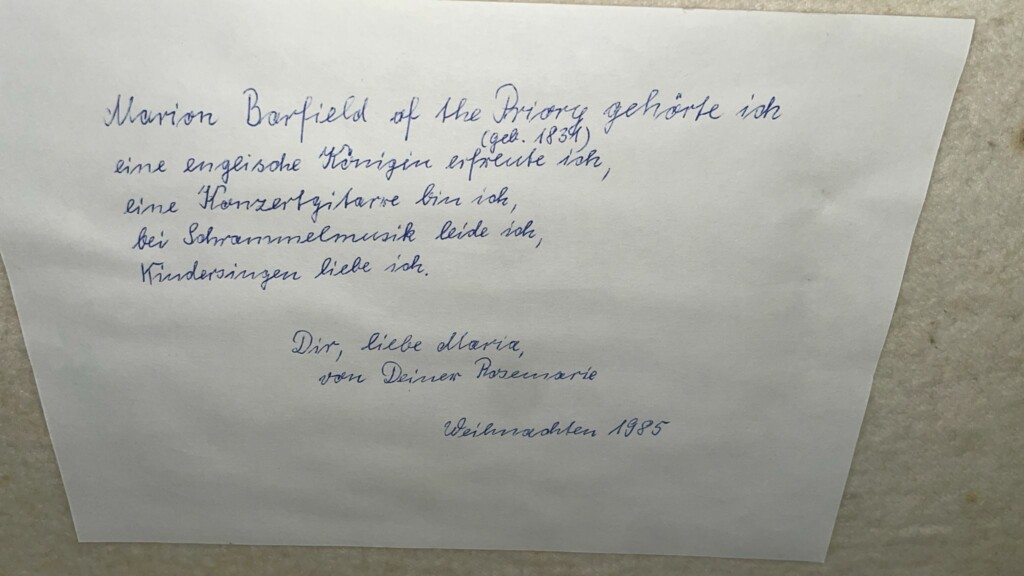 Marion Barfield of the Priory gehörte ich
(geb. 1831)
eine englische Königin erfreute ich,
eine Konzertgitarre bin ich,
bei Schrammelmusik leide ich,
Kindersingen liebe ich.
Dir, liebe Maria,
von Deiner Rosemarie
Weihnachten 1985